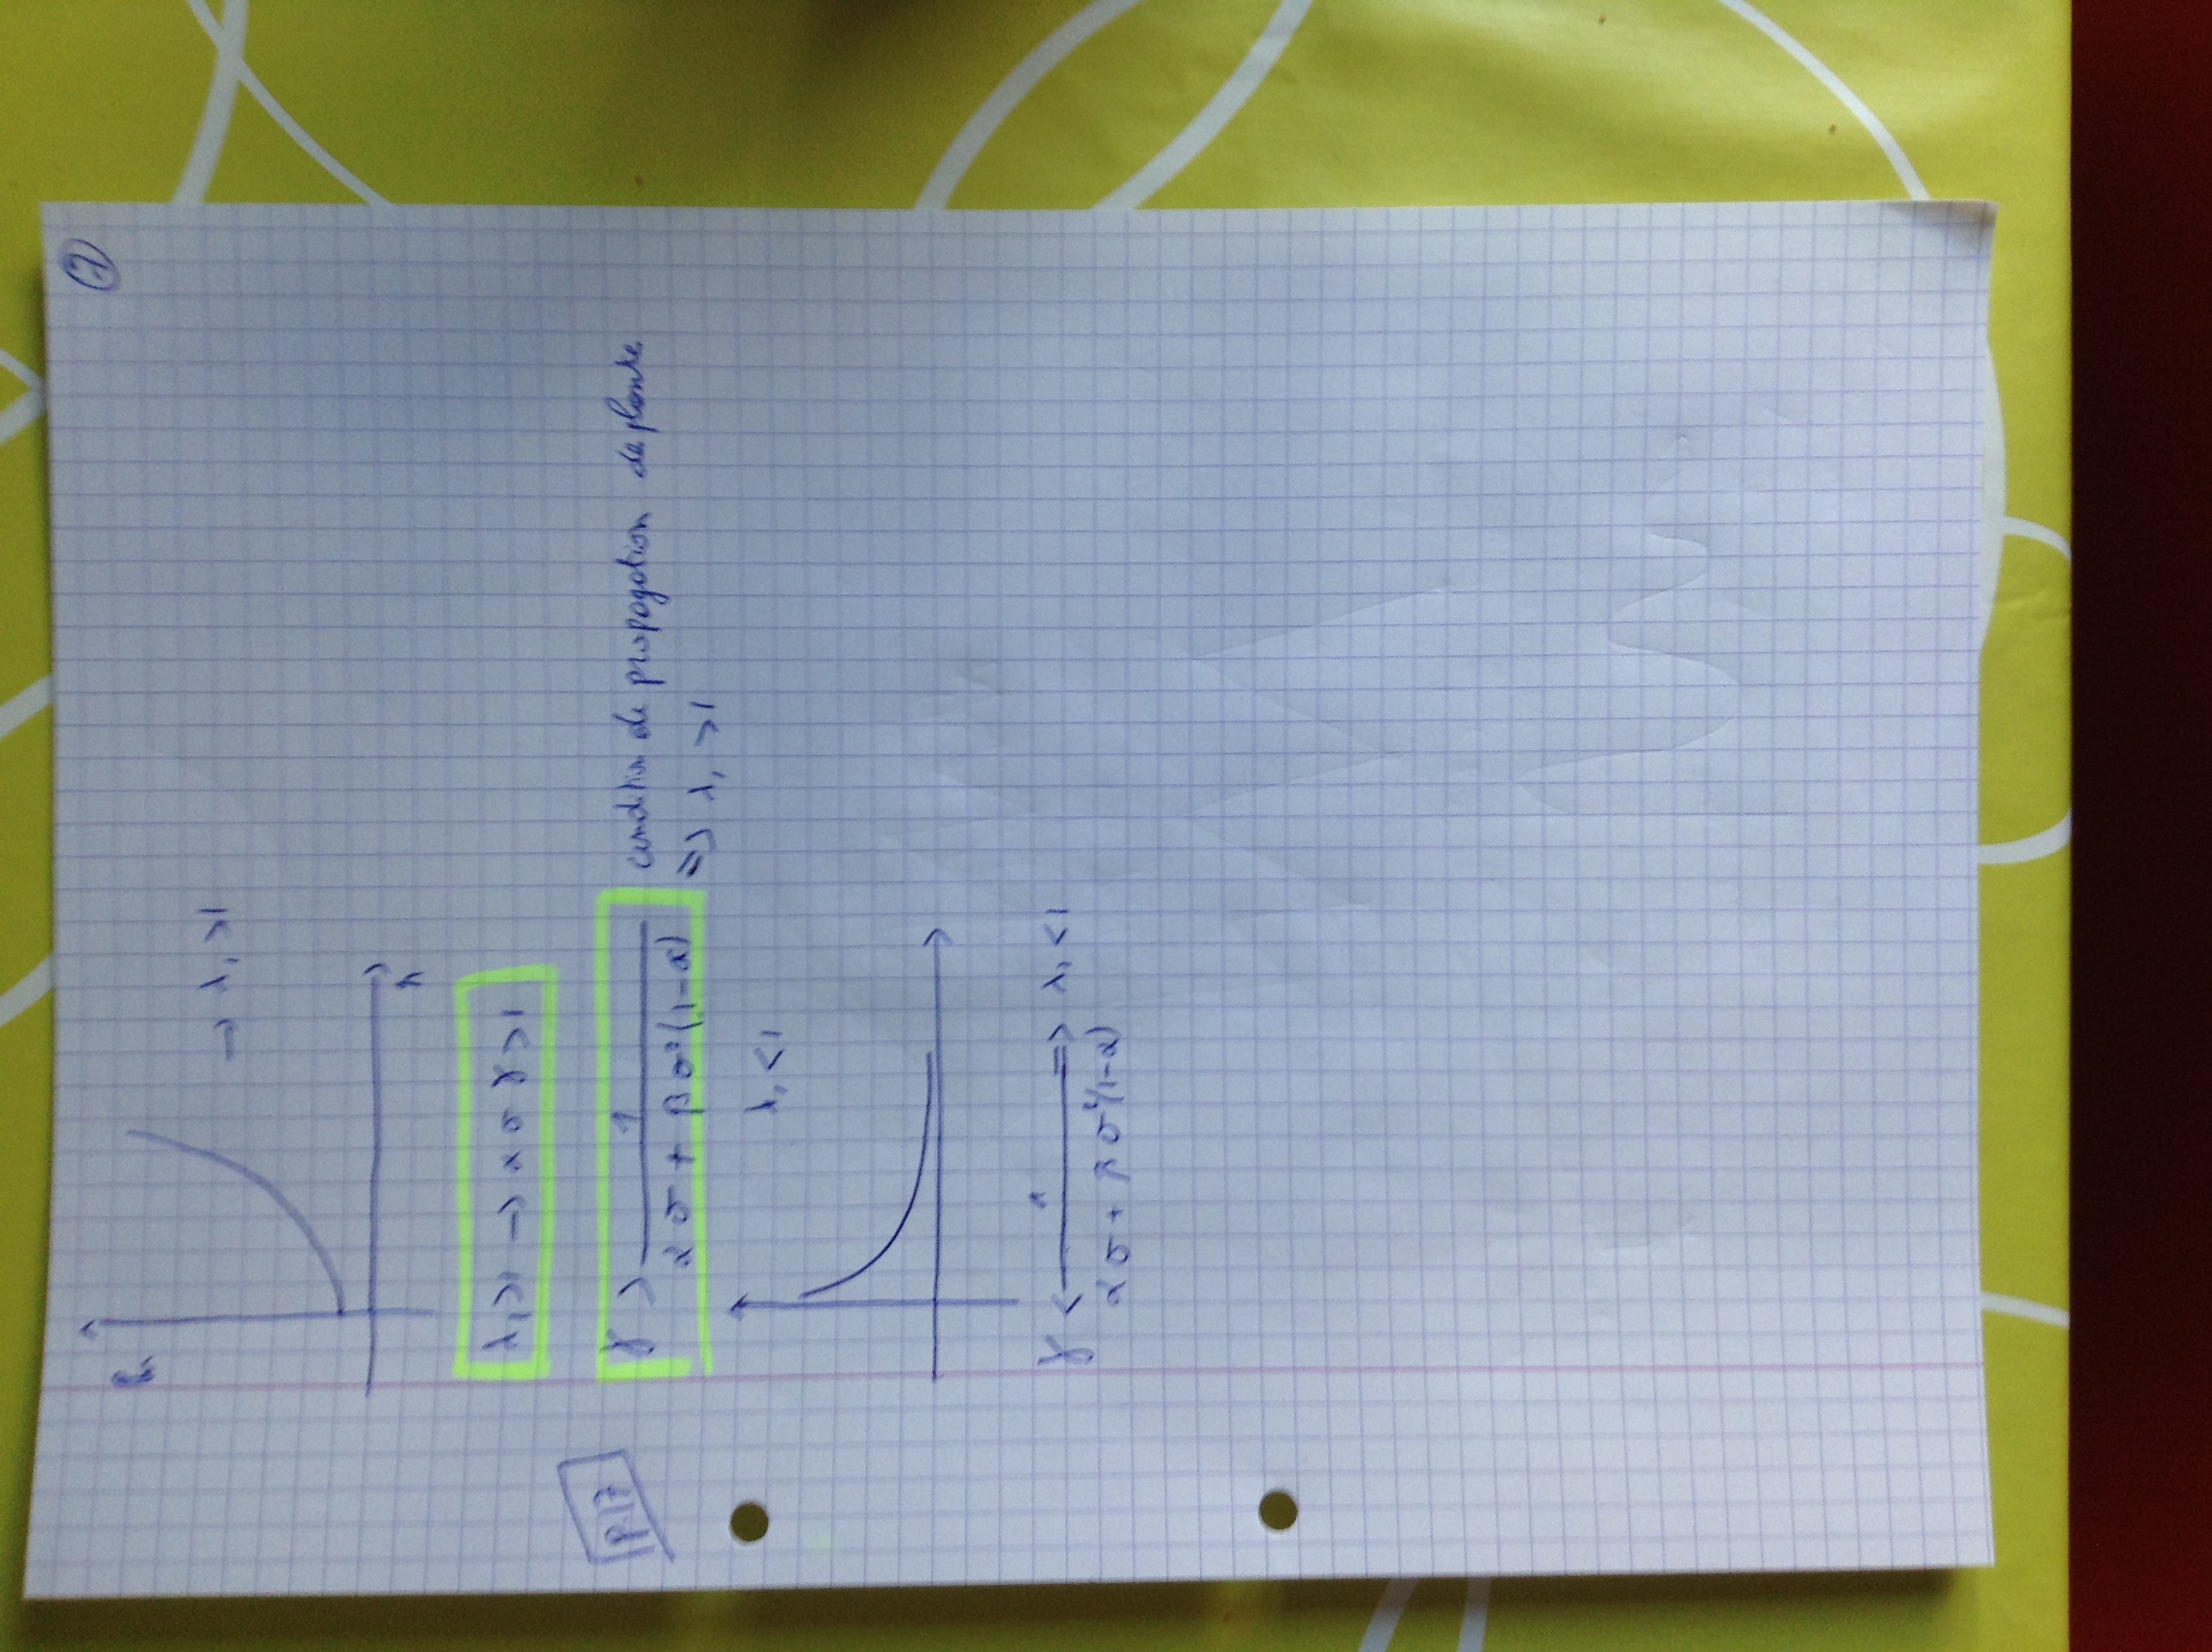 ②
Pn
→ λ₁ >1
n
λ₁>1 → α σ γ >1
p.17
γ > 1 / (α σ + β σ² (1-α)) condition de propagation de plante
=> λ₁ >1
λ₁ <1
γ < 1 / (α σ + β σ² (1-α)) => λ₁ <1